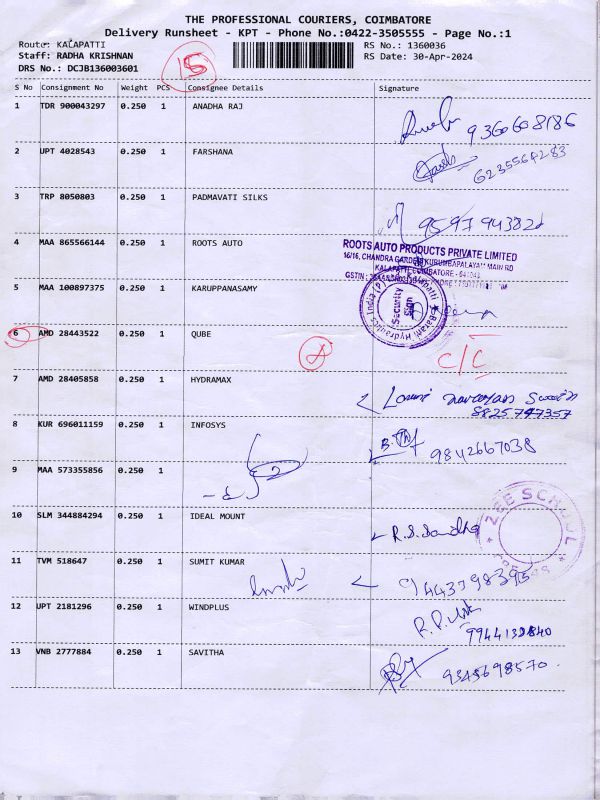 THE PROFESSIONAL COURIERS, COIMBATORE
Delivery Runsheet - KPT - Phone No.:0422-3505555 - Page No.:1
Route: KALAPATTI
Staff: RADHA KRISHNAN
DRS No.: DCJB136003601
RS No.: 1360036
RS Date: 30-Apr-2024
15
S No Consignment No Weight PCS Consignee Details Signature
1 TDR 900043297 0.250 1 ANADHA RAJ 9360608186
2 UPT 4028543 0.250 1 FARSHANA 6235564283
3 TRP 8050803 0.250 1 PADMAVATI SILKS
4 MAA 865566144 0.250 1 ROOTS AUTO
ROOTS AUTO PRODUCTS PRIVATE LIMITED
16/16, CHANDRA GARDEN KURUMBAPALAYAM MAIN RD
KALAPATTI COIMBATORE
GSTIN :
Security
Sign
5 MAA 100897375 0.250 1 KARUPPANASAMY
6 AMD 28443522 0.250 1 QUBE C/C
7 AMD 28405858 0.250 1 HYDRAMAX
8825747357
8 KUR 696011159 0.250 1 INFOSYS 9842667038
9 MAA 573355856 0.250 1
10 SLM 344884294 0.250 1 IDEAL MOUNT R.S.Sandhya
ZEE SCHOOL
11 TVM 518647 0.250 1 SUMIT KUMAR
12 UPT 2181296 0.250 1 WINDPLUS
9944132840
13 VNB 2777884 0.250 1 SAVITHA 9345698570